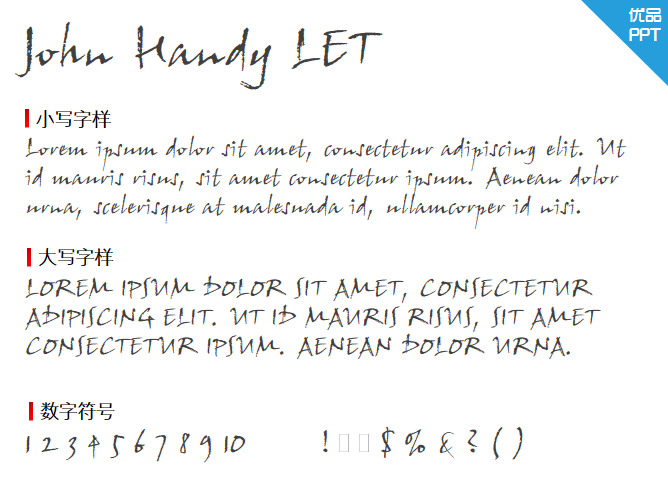 优品
PPT
John Handy LET
小写字样
Lorem ipsum dolor sit amet, consectetur adipiscing elit. Ut
id mauris risus, sit amet consectetur ipsum. Aenean dolor
urna, scelerisque at malesuada id, ullamcorper id nisi.
大写字样
LOREM IPSUM DOLOR SIT AMET, CONSECTETUR
ADIPISCING ELIT. UT ID MAURIS RISUS, SIT AMET
CONSECTETUR IPSUM. AENEAN DOLOR URNA.
数字符号
1 2 3 4 5 6 7 8 9 10 ! □ □ $ % & ? ( )